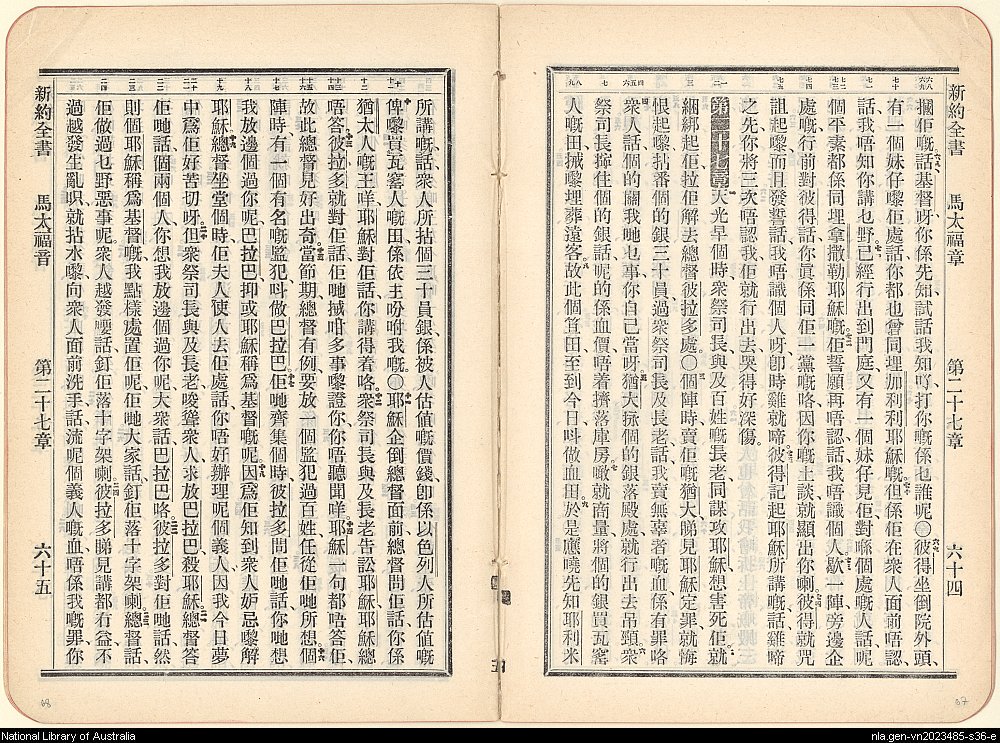 新約全書 馬太福章 第二十七章 六十四
摑佢嘅話基督呀你係先知試話我知吖打你嘅係乜誰呢〇彼得坐倒院外頭
有一個妹仔嚟佢處話你都也曾同埋加利利耶穌嘅但係佢在衆人面前唔認
話我唔知你講乜野已經行出到門庭又有一個妹仔見佢對喺個處嘅人話呢
個平素都係同埋拿撒勒耶穌嘅佢誓願再唔認話我唔識個人歇一陣旁邊企
處嘅行前對彼得話你眞係同佢一黨嘅咯因你嘅土談就顯出你喇彼得就咒
詛起嚟而且發誓話我唔識個人呀卽時雞就啼彼得記起耶穌所講嘅話雞啼
之先你將三次唔認我佢就行出去哭得好深傷
第二十七章 天光早個時衆祭司長與及百姓嘅長老同謀攻耶穌想害死佢就
綑綁起佢拉佢解去總督彼拉多處〇個陣時賣佢嘅猶大睇見耶穌定罪就悔
恨起嚟拈番個的銀三十員過衆祭司長及長老話我賣無辜者嘅血係有罪咯
衆人話個的關我哋乜事你自己當呀猶大揼個的銀落殿處就行出去吊頸衆
祭司長揼住個的銀話呢的係血價唔着擠落庫房噉就商量將個的銀買瓦窰
人嘅田摵嚟埋葬遠客故此個笪田至到今日呌做血田於是應曉先知耶利米
新約全書 馬太福音 第二十七章 六十五
所講嘅話衆人所拈個三十員銀係被人估值嘅價錢卽係以色列人所估值嘅
俾嚟買瓦窰人嘅田係依主吩咐我嘅〇耶穌企倒總督面前總督問佢話你係
猶太人嘅王咩耶穌對佢話你講得着咯衆祭司長與及長老告訟耶穌耶穌總
唔答彼拉多就對佢話佢哋摵咁多事嚟證你你唔聽聞咩耶穌一句都唔答佢
故此總督見好出奇當節期總督有例要放一個監犯過百姓任從佢哋所想個
陣時有一個有名嘅監犯呌做巴拉巴佢哋齊集個時彼拉多問佢哋話你哋想
我放邊個過你呢巴拉巴抑或耶穌稱爲基督嘅呢因爲佢知到衆人妒忌嚟解
耶穌總督坐堂個時佢夫人使人去佢處話你唔好辦理呢個義人因我今日夢
中爲佢好苦切呀但衆祭司長與及長老唆聳衆人求放巴拉巴殺耶穌總督答
佢哋話個兩個人你想我放邊個過你呢大衆話巴拉巴咯彼拉多對佢哋話然
則個耶穌稱爲基督嘅我點樣處置佢呢佢哋大家話釘佢落十字架喇總督話
佢做過乜野惡事呢衆人越發嘜話釘佢落十字架喇彼拉多睇見講都冇益不
過越發生亂呮就拈水嚟向衆人面前洗手話流呢個義人嘅血唔係我嘅罪你
68
67
National Library of Australia
nla.gen-vn2023485-s36-e